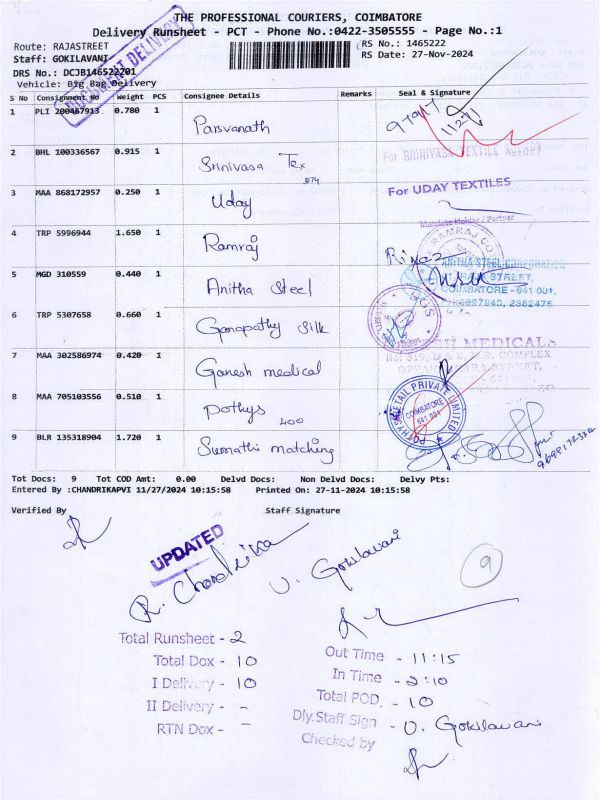 THE PROFESSIONAL COURIERS, COIMBATORE
Delivery Runsheet - PCT - Phone No.:0422-3505555 - Page No.:1
Route: RAJASTREET
Staff: GOKILAVANI
DRS No.: DCJB146522201
Vehicle: Big Bag Delivery
RS No.: 1465222
RS Date: 27-Nov-2024
DOCUMENT DELIVERY
S No Consignment No Weight PCS Consignee Details Remarks Seal & Signature
1 PLI 200467913 0.780 1 Parsvanath
2 BHL 100336567 0.915 1 Srinivasa Tex
For SRINIVASA TEXTILE AGENCY
3 MAA 868172957 0.250 1 Uday
For UDAY TEXTILES
Mandate Holder / Partner
4 TRP 5996944 1.650 1 Ramraj
5 MGD 310559 0.440 1 Anitha Steel
ANITHA STEEL CORPORATION
COIMBATORE - 641 001.
6 TRP 5307658 0.660 1 Ganapathy Silk
7 MAA 302586974 0.420 1 Ganesh medical
MEDICALS
8 MAA 705103556 0.510 1 Pothys 400
POTHYS RETAIL PRIVATE LIMITED
COIMBATORE
641 001
9 BLR 135318904 1.720 1 Sumathi matching
Tot Docs: 9 Tot COD Amt: 0.00 Delvd Docs: Non Delvd Docs: Delvy Pts:
Entered By :CHANDRIKAPVI 11/27/2024 10:15:58 Printed On: 27-11-2024 10:15:58
Verified By Staff Signature
UPDATED
R. Chandrika
U. Gokilavani
9
Total Runsheet - 2
Total Dox - 10
I Delivery - 10
II Delivery - -
RTN Dox - -
Out Time - 11:15
In Time - 2:10
Total POD. - 10
Dly.Staff Sign - U. Gokilavani
Checked by